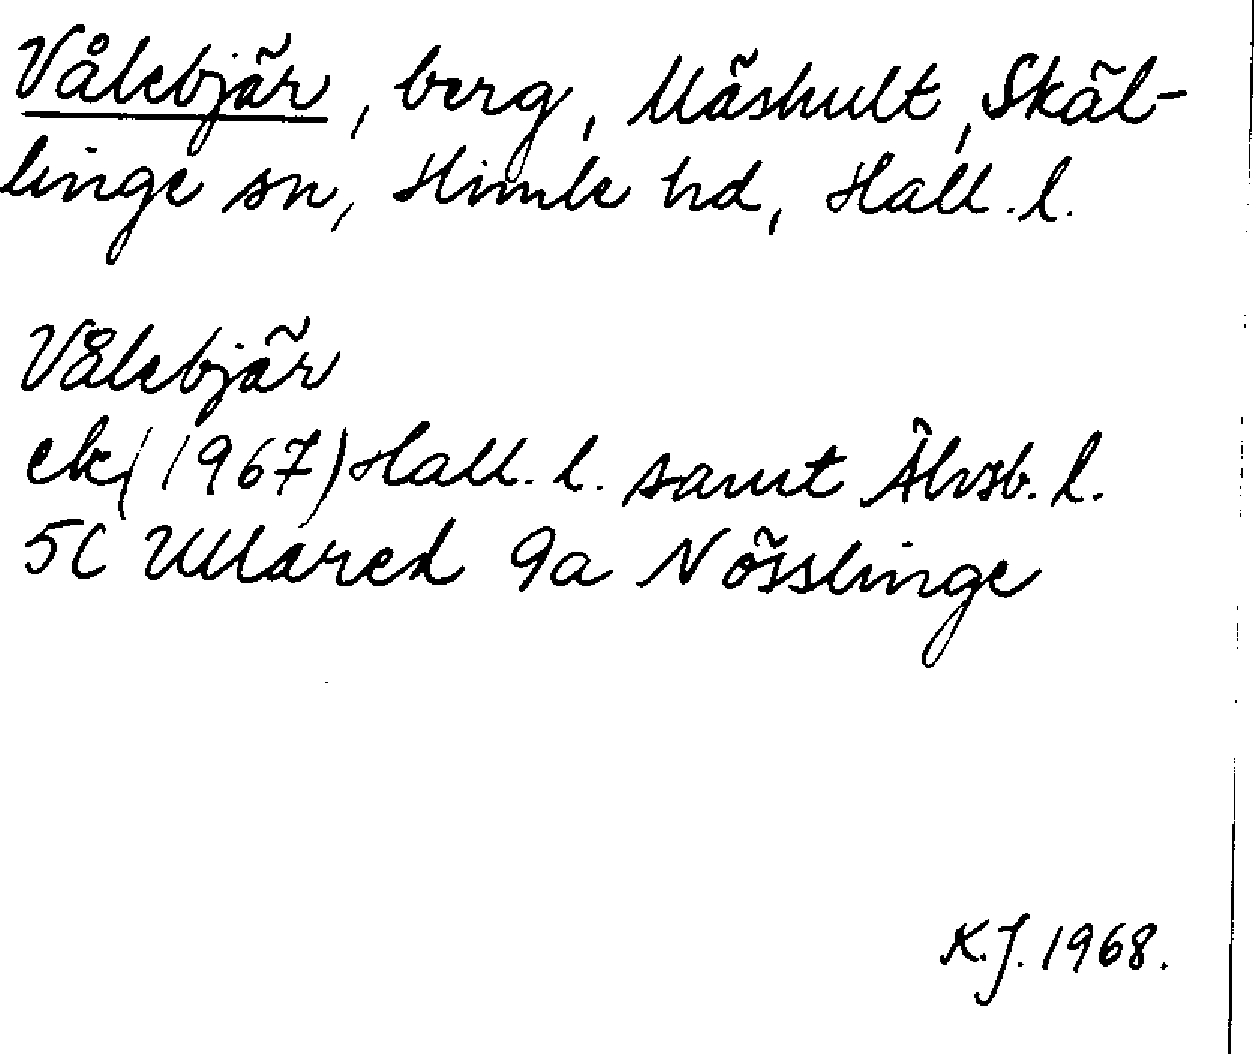 Vålebjär, berg, Mäshult, Skäl-
linge sn, Himle hd, Hall. l.
Vålebjär
ek (1967) Hall. l. samt Älvsb. l.
5C Ullared 9a Nösslinge
K.J. 1968.